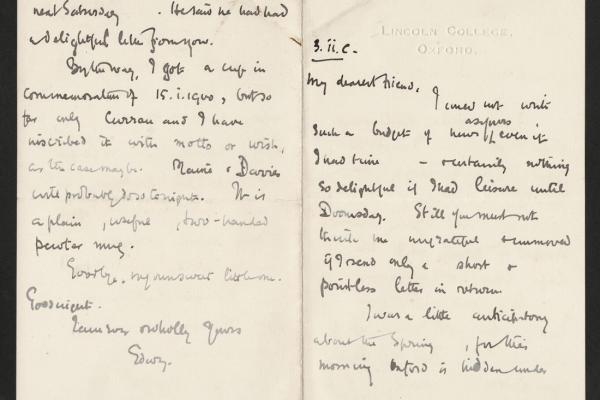 next Saturday. He said he had had
a delightful letter from you.
By the way, I got a cup in
commemoration of 15.i.1900, but so
far only Curran and I have
inscribed it with motto or wish,
as the case may be. Maine & Davies
will probably do so tonight. It is
a plain, useful, two-handed
pewter mug.
Goodbye, my own sweet little one.
Goodnight.
I am ever & wholly yours
Edwy.
LINCOLN COLLEGE,
OXFORD.
3.ii.c.
My dearest friend,
I could not write
such a budget of news as yours even if
I had time – & certainly nothing
so delightful if I had leisure until
Doomsday. Still you must not
think me ungrateful & unmoved
if I send only a short &
pointless letter in return.
I was a little anticipatory
about the Spring, for this
morning Oxford is hidden under